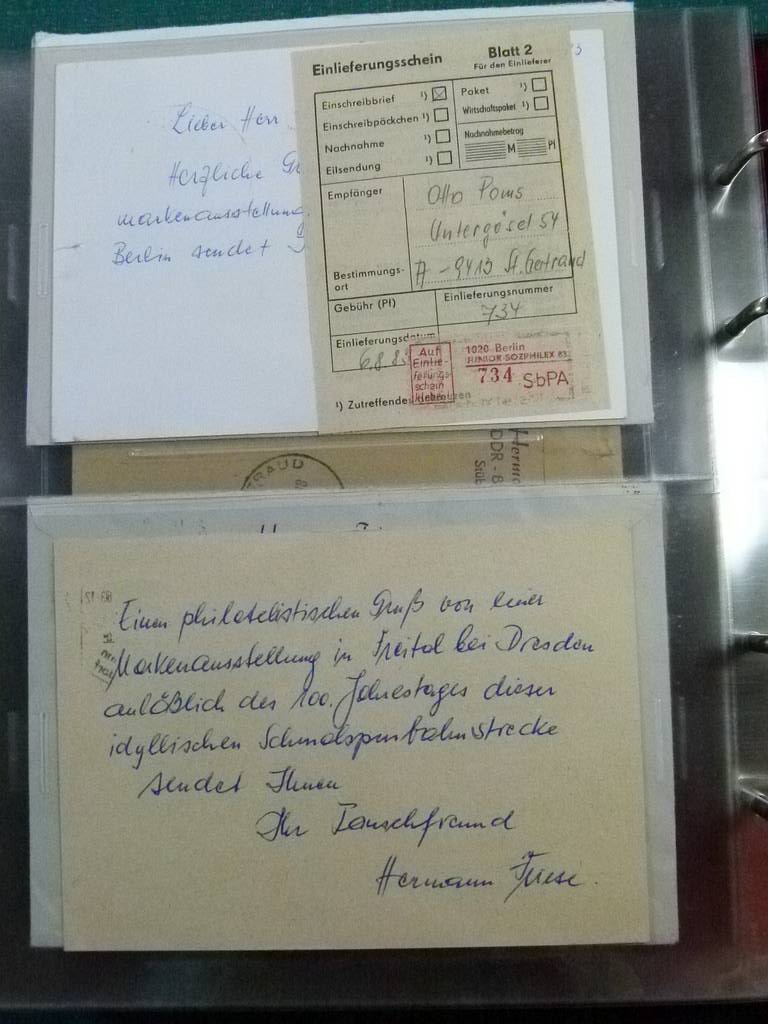 Lieber Herr
Herzliche
markenausstellung
Berlin sendet
Einlieferungsschein
Blatt 2
Für den Einlieferer
Einschreibbrief ¹) ☒
Einschreibpäckchen ¹) ☐
Nachnahme ¹) ☐
Eilsendung ¹) ☐
Paket ¹) ☐
Wirtschaftspaket ¹) ☐
Nachnahmebetrag
M Pf
Empfänger
Otto Poms
Untergösel 54
Bestimmungs-
ort
A - 9413 St. Gertraud
Gebühr (Pf)
Einlieferungsnummer
734
Einlieferungsdatum
6.8.83
Auf
Einlie-
ferungs-
schein
kleben
1020 Berlin
JUNIOR-SOZPHILEX 83
734 SbPA
¹) Zutreffendes
RAUD
DDR - 8
Einen philatelistischen Gruß von einer
Markenausstellung in Freital bei Dresden
anläßlich des 100. Jahrestages dieser
idyllischen Schmalspurbahnstrecke
sendet Ihnen
Ihr Tauschfreund
Hermann Friese.